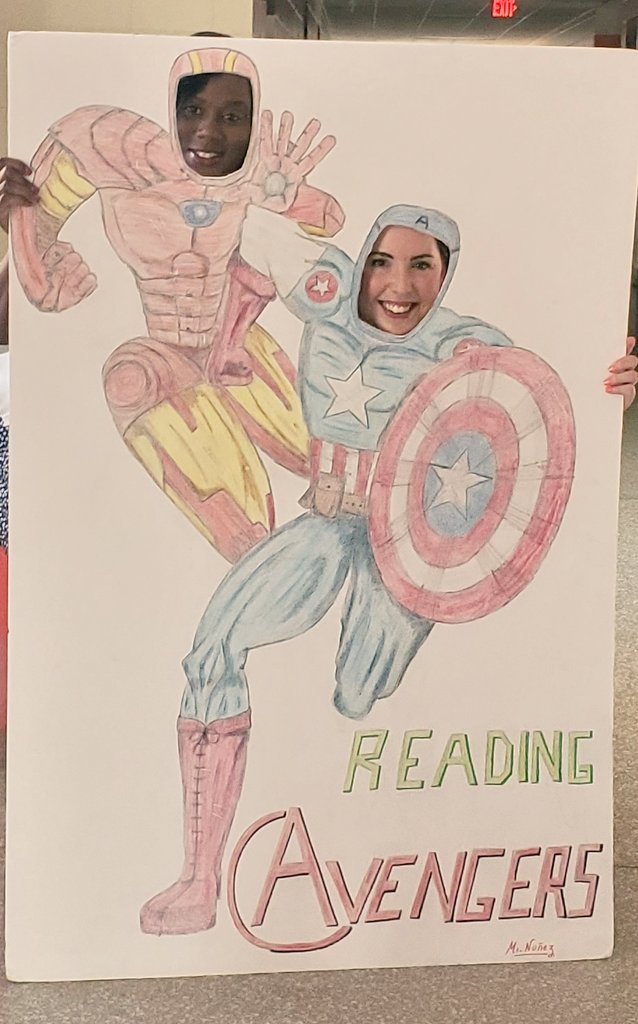 EXIT
A
READING
AVENGERS
Mr. Núñez